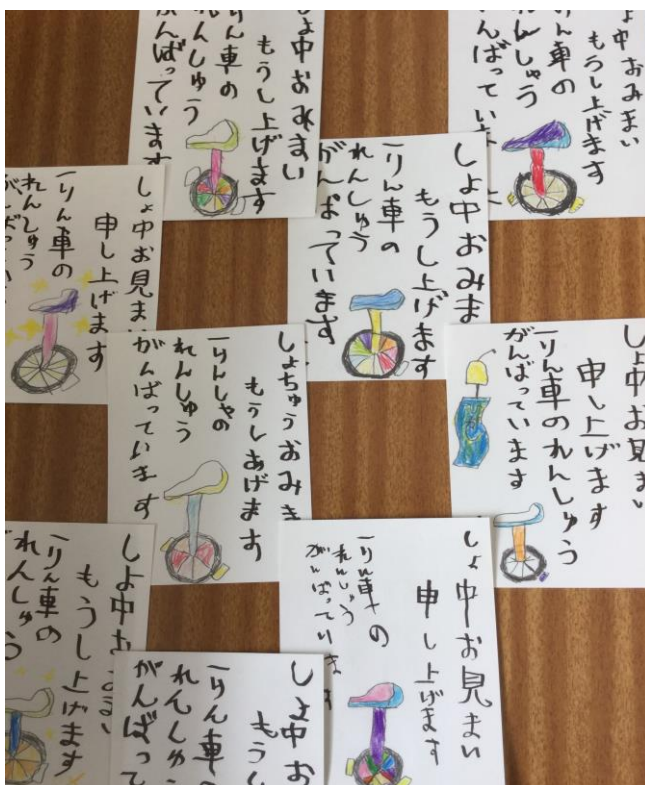 しょ中おみまい
もうし上げます
りん車の
れんしゅう
がんばっています
ょ中おみまい
もうし上げます
りん車の
んしゅう
んばってい
しょ中お見まい
申し上げます
一りん車の
れんしゅう
がんばってい
しょ中おみま
もうし上げます
一りん車の
れんしゅう
がんばっています
しょちゅうおみま
もうしあげます
一りんしゃの
れんしゅう
がんばっています
しょ中お見まい
申し上げます
一りん車のれんしゅう
がんばっています
しょ中お
まい
もうし上げます
一りん車の
れんしゅう
しょ中お見まい
申し上げます
一りん車の
れんしゅう
がんばっています
しょ中お
もうし
一りん車の
れんしゅ
がんばって